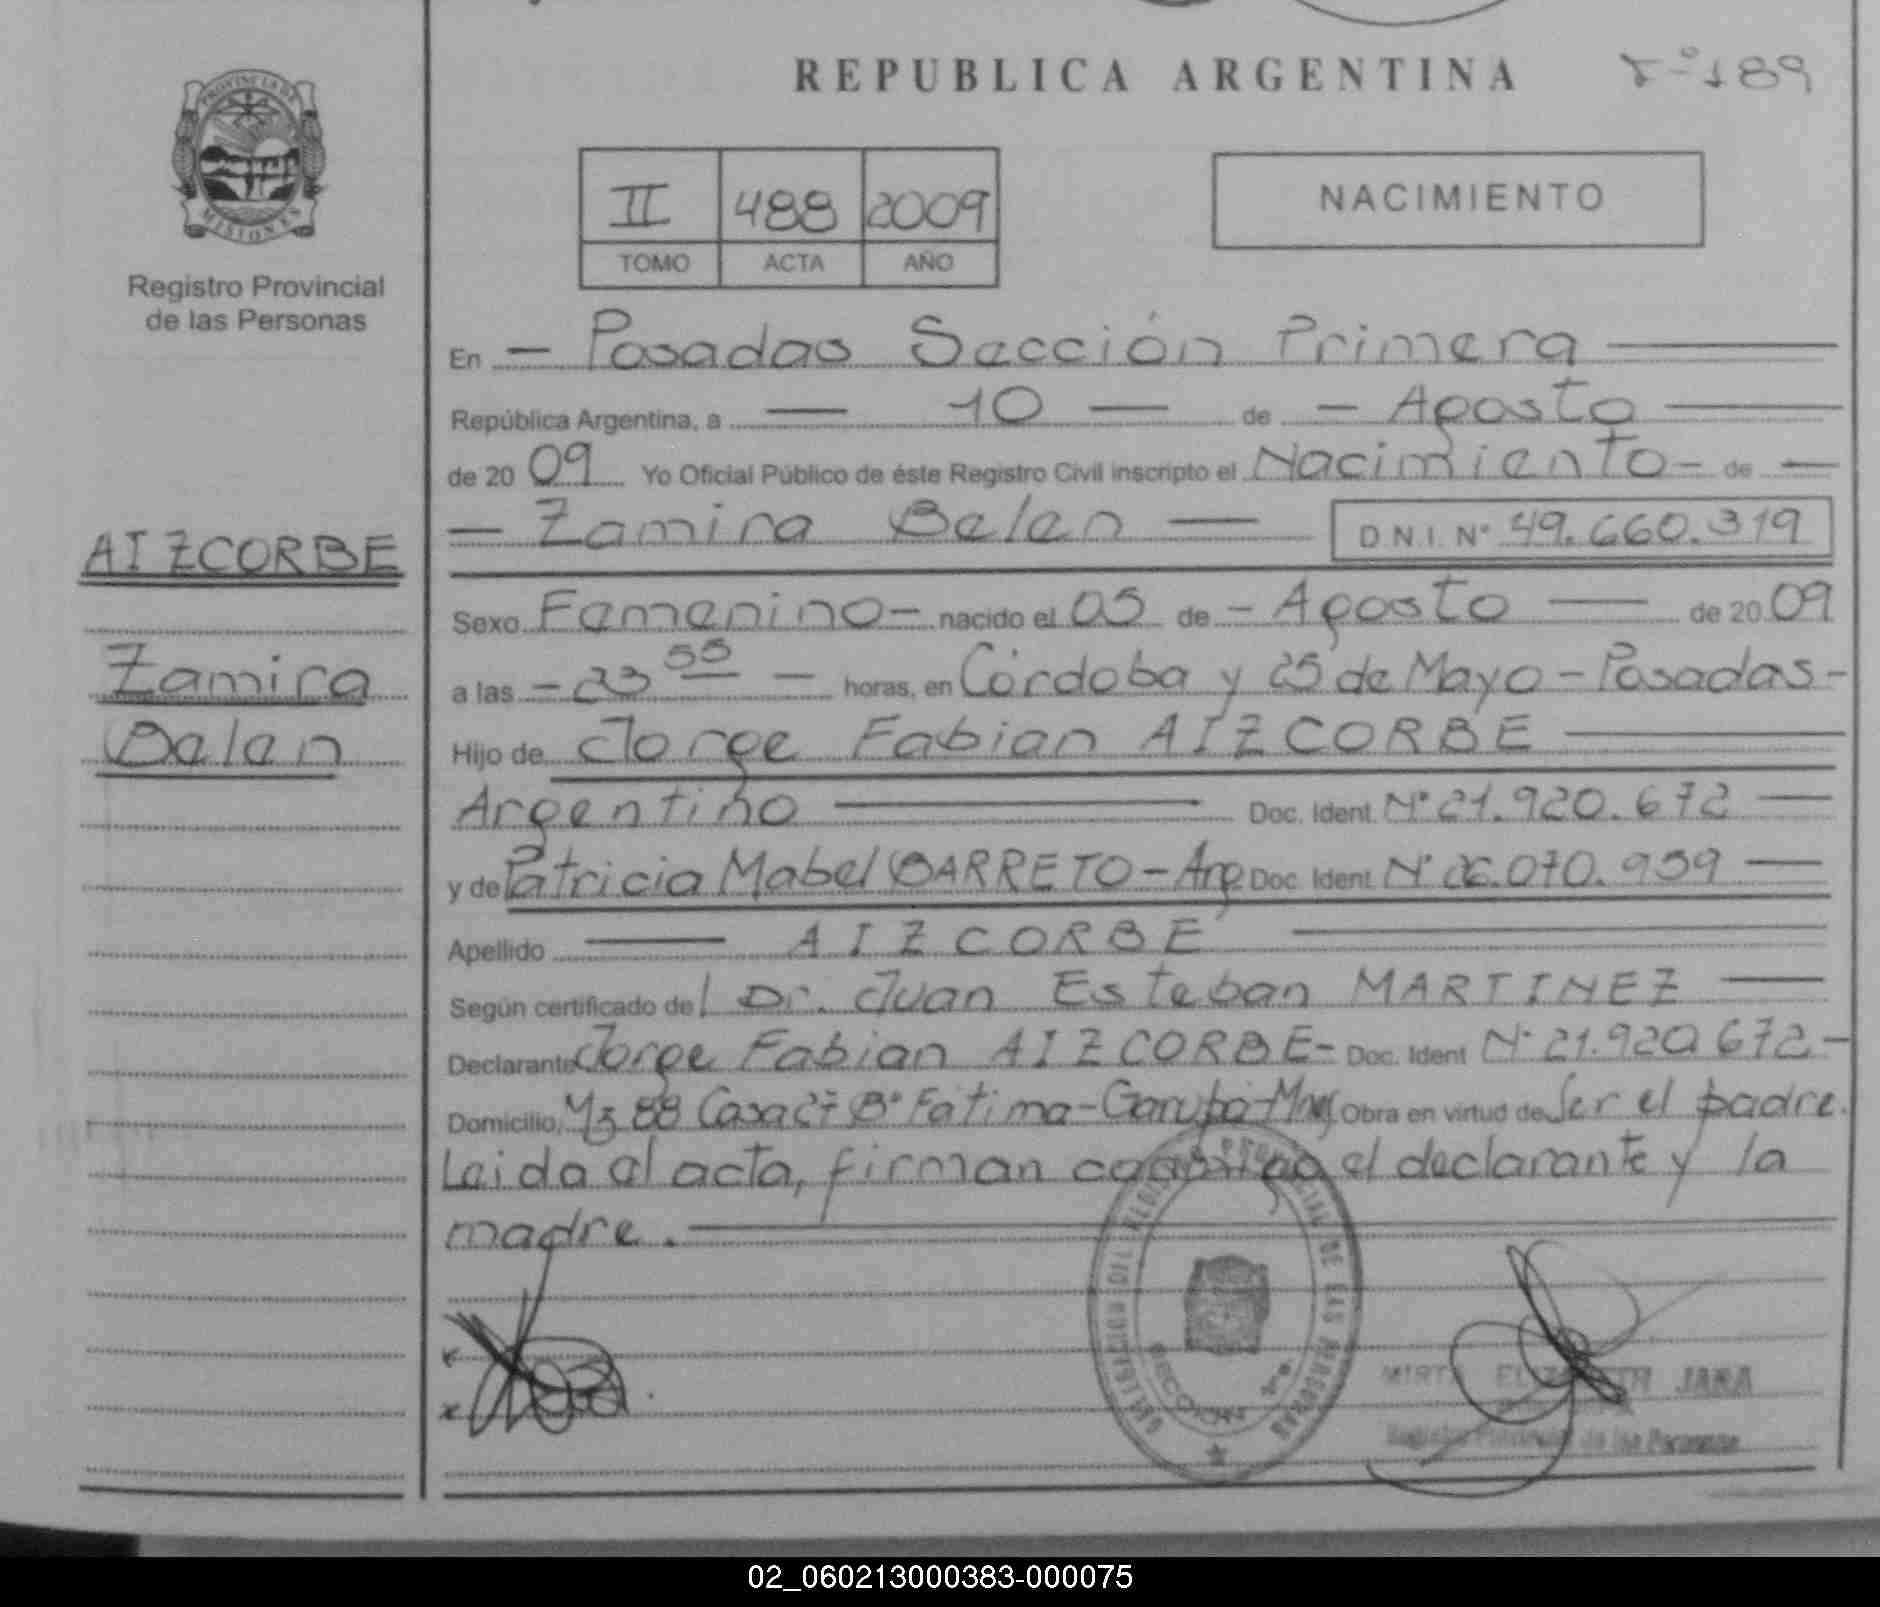 REPUBLICA ARGENTINA
189
PROVINCIA DE
MISIONES
Registro Provincial
de las Personas
II 488 2009
TOMO ACTA AÑO
NACIMIENTO
En — Posadas Sección Primera —
República Argentina, a — 10 — de — Agosto —
de 2009 Yo Oficial Público de éste Registro Civil inscripto el Nacimiento — de —
— Zamira Belen — D.N.I. N° 49.660.319
AIZCORBE
Zamira
Belen
Sexo Femenino — nacido el 05 de — Agosto — de 2009
a las — 23 55 — horas, en Córdoba y 25 de Mayo — Posadas —
Hijo de Jorge Fabian AIZCORBE —
Argentino — Doc. Ident. N° 21.920.672 —
y de Patricia Mabel BARRETO — Arg Doc. Ident. N° 26.070.959 —
Apellido — AIZCORBE —
Según certificado del Dr. Juan Esteban MARTINEZ —
Declarante Jorge Fabian AIZCORBE — Doc. Ident N° 21.920.672 —
Domicilio, Mz 88 Casa 27 B° Fátima — Garupá — Mnes Obra en virtud de Ser el padre.
Leida el acta, firman conmigo el declarante y la
madre. —
DE LAS PERSONAS
SECCION 1ra.
MIRTA ELIZABETH JARA
Registro Provincial de las Personas
02_060213000383-000075